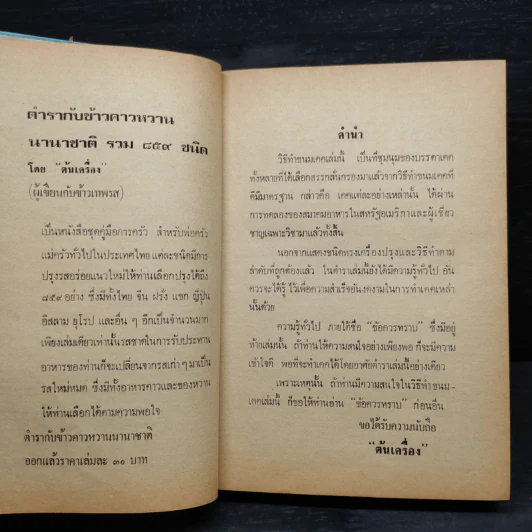 ตำรากับข้าวคาวหวาน
นานาชาติ รวม ๘๕๙ ชนิด
โดย "ต้นเครื่อง"
(ผู้เขียนกับข้าวเทพรส)
เป็นหนังสือชุดคู่มือการครัว สำหรับพ่อครัว
แม่ครัวทั่วไปในประเทศไทย แต่ละชนิดมีการ
ปรุงรสอร่อยแนวใหม่ให้ท่านเลือกปรุงได้ถึง
๘๕๙ อย่าง ซึ่งมีทั้งไทย จีน ฝรั่ง แขก ญี่ปุ่น
อิสลาม ยุโรป และอื่น ๆ อีกเป็นจำนวนมาก
เพียงเล่มเดียวเท่านั้นรสชาดในการรับประทาน
อาหารของท่านก็จะเปลี่ยนจากรสเก่าๆ มาเป็น
รสใหม่หมด ซึ่งมีทั้งอาหารคาวและของหวาน
ให้ท่านเลือกได้ตามความพอใจ
ตำรากับข้าวคาวหวานนานาชาติ
ออกแล้วราคาเล่มละ ๓๐ บาท
คำนำ
วิธีทำขนมเคคเล่มนี้ เป็นที่ชุมนุมของบรรดาเคค
ทั้งหลายที่ได้เลือกสรรกลั่นกรองมาแล้วจากวิธีทำขนมเคคที่
ดีมีมาตรฐาน กล่าวคือ เคคแต่ละอย่างเหล่านั้น ได้ผ่าน
การทดลองของสมาคมอาหารในสหรัฐอเมริกาและผู้เชี่ยว
ชาญเฉพาะวิชามาแล้วทั้งสิ้น
นอกจากแสดงชนิดทรงเครื่องปรุงและวิธีทำตาม
ลำดับที่ถูกต้องแล้ว ในตำราเล่มนี้ยังได้มีความรู้ทั่วไป อัน
ควรจะได้รู้ ไว้เพื่อความสำเร็จอันงดงามในการทำเคคเหล่า
นั้นด้วย
ความรู้ทั่วไป ภายใต้ชื่อ "ข้อควรทราบ" ซึ่งมีอยู่
ท้ายเล่มนั้น ถ้าท่านให้ความสนใจอย่างเพียงพอ ก็จะมีความ
เข้าใจดี พอที่จะทำเคคได้โดยอาศัยตำราเล่มนี้อย่างเดียว
เพราะเหตุนั้น ถ้าท่านมีความสนใจในวิธีทำขนม-
เคคเล่มนี้ ก็ขอให้ท่านอ่าน "ข้อควรทราบ" ก่อนอื่น
ขอได้รับความนับถือ
"ต้นเครื่อง"